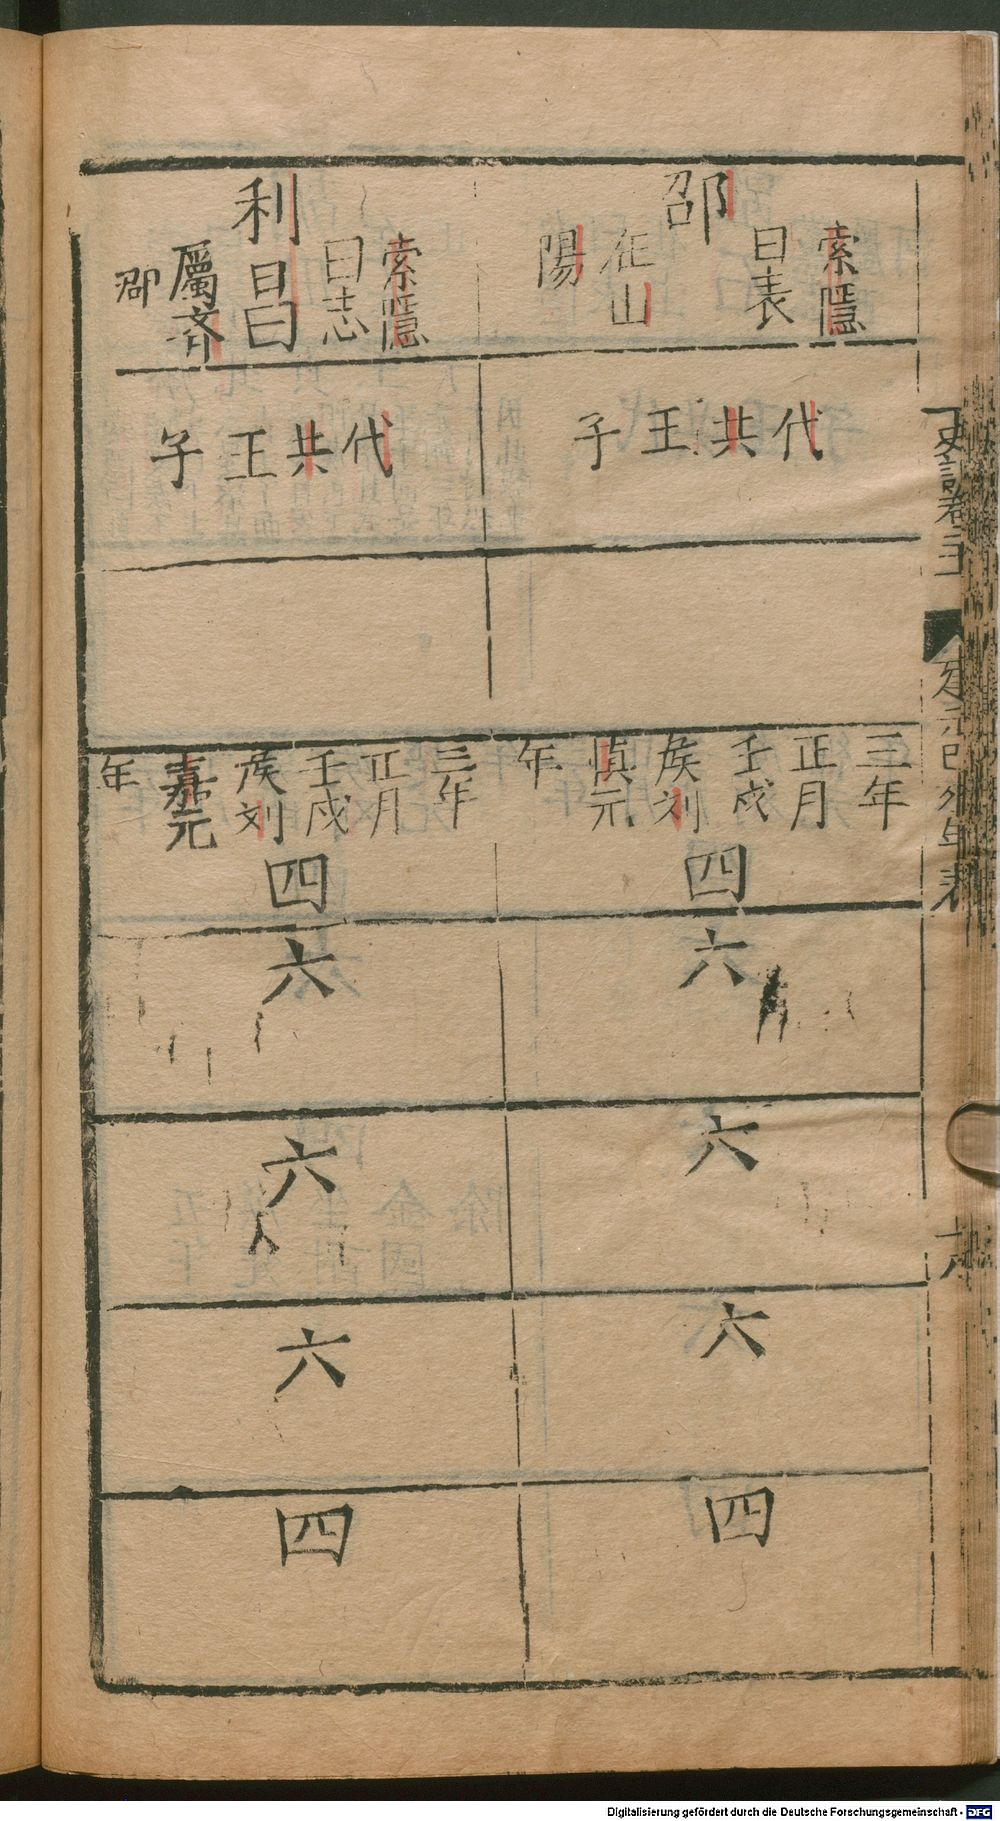 邵
索隱
曰表
在山
陽
代共王子
三年
正月
壬戌
侯刘
慎元
年
四
六
六
六
四
利昌
索隱
曰志
屬齐
郡
代共王子
三年
正月
壬戌
侯刘
嘉元
年
四
六
六
六
四
史記卷
年表
六
Digitalisierung gefördert durch die Deutsche Forschungsgemeinschaft - DFG